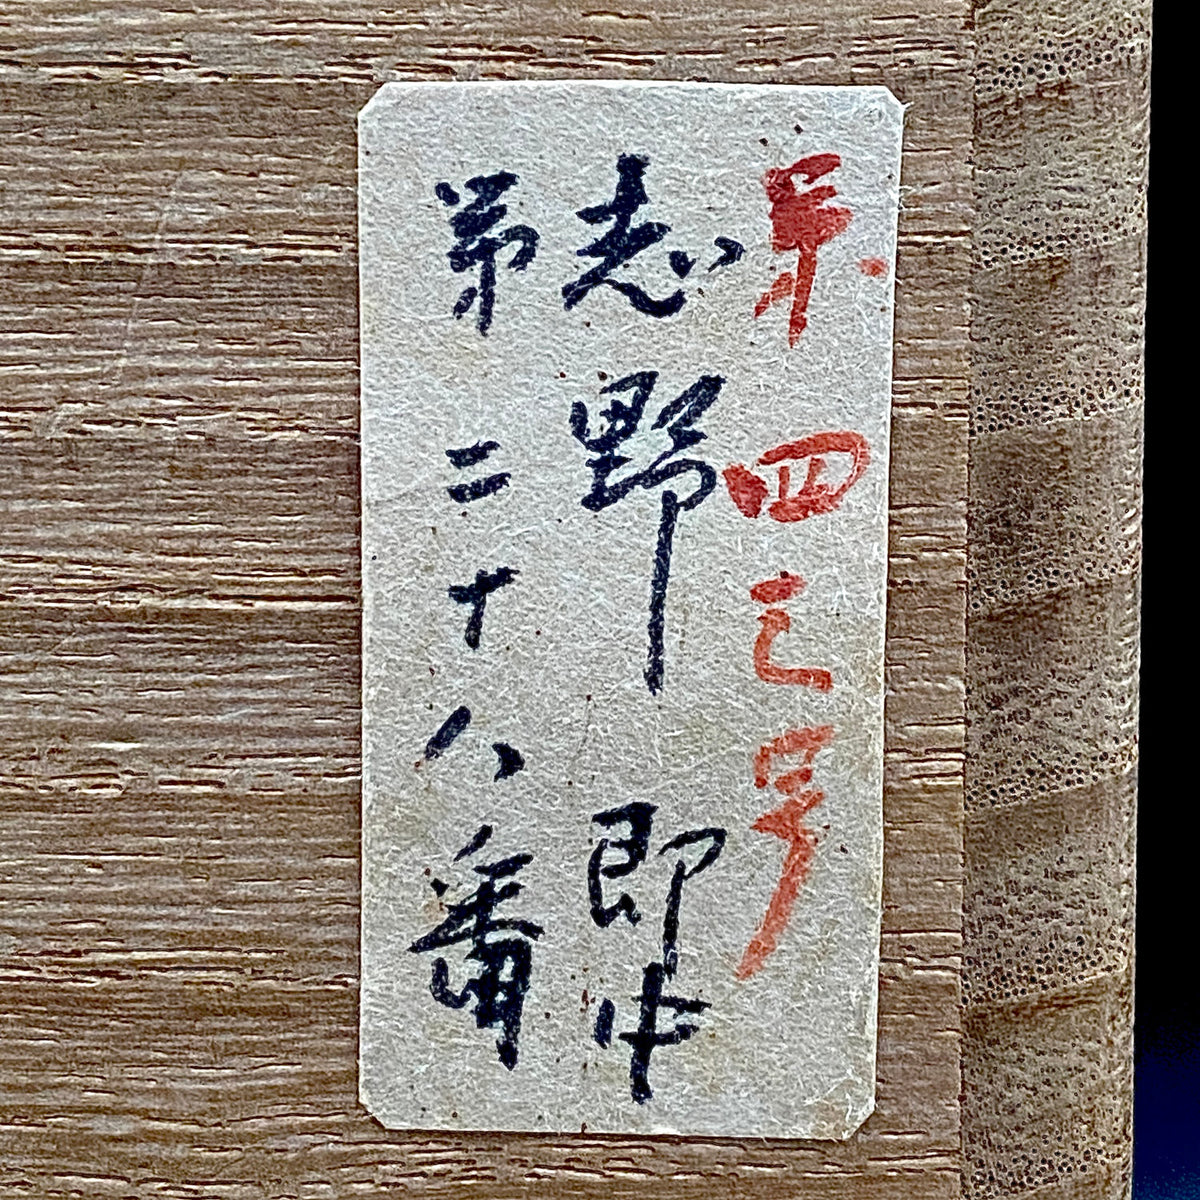 第四号
志野 即中
第二十八番